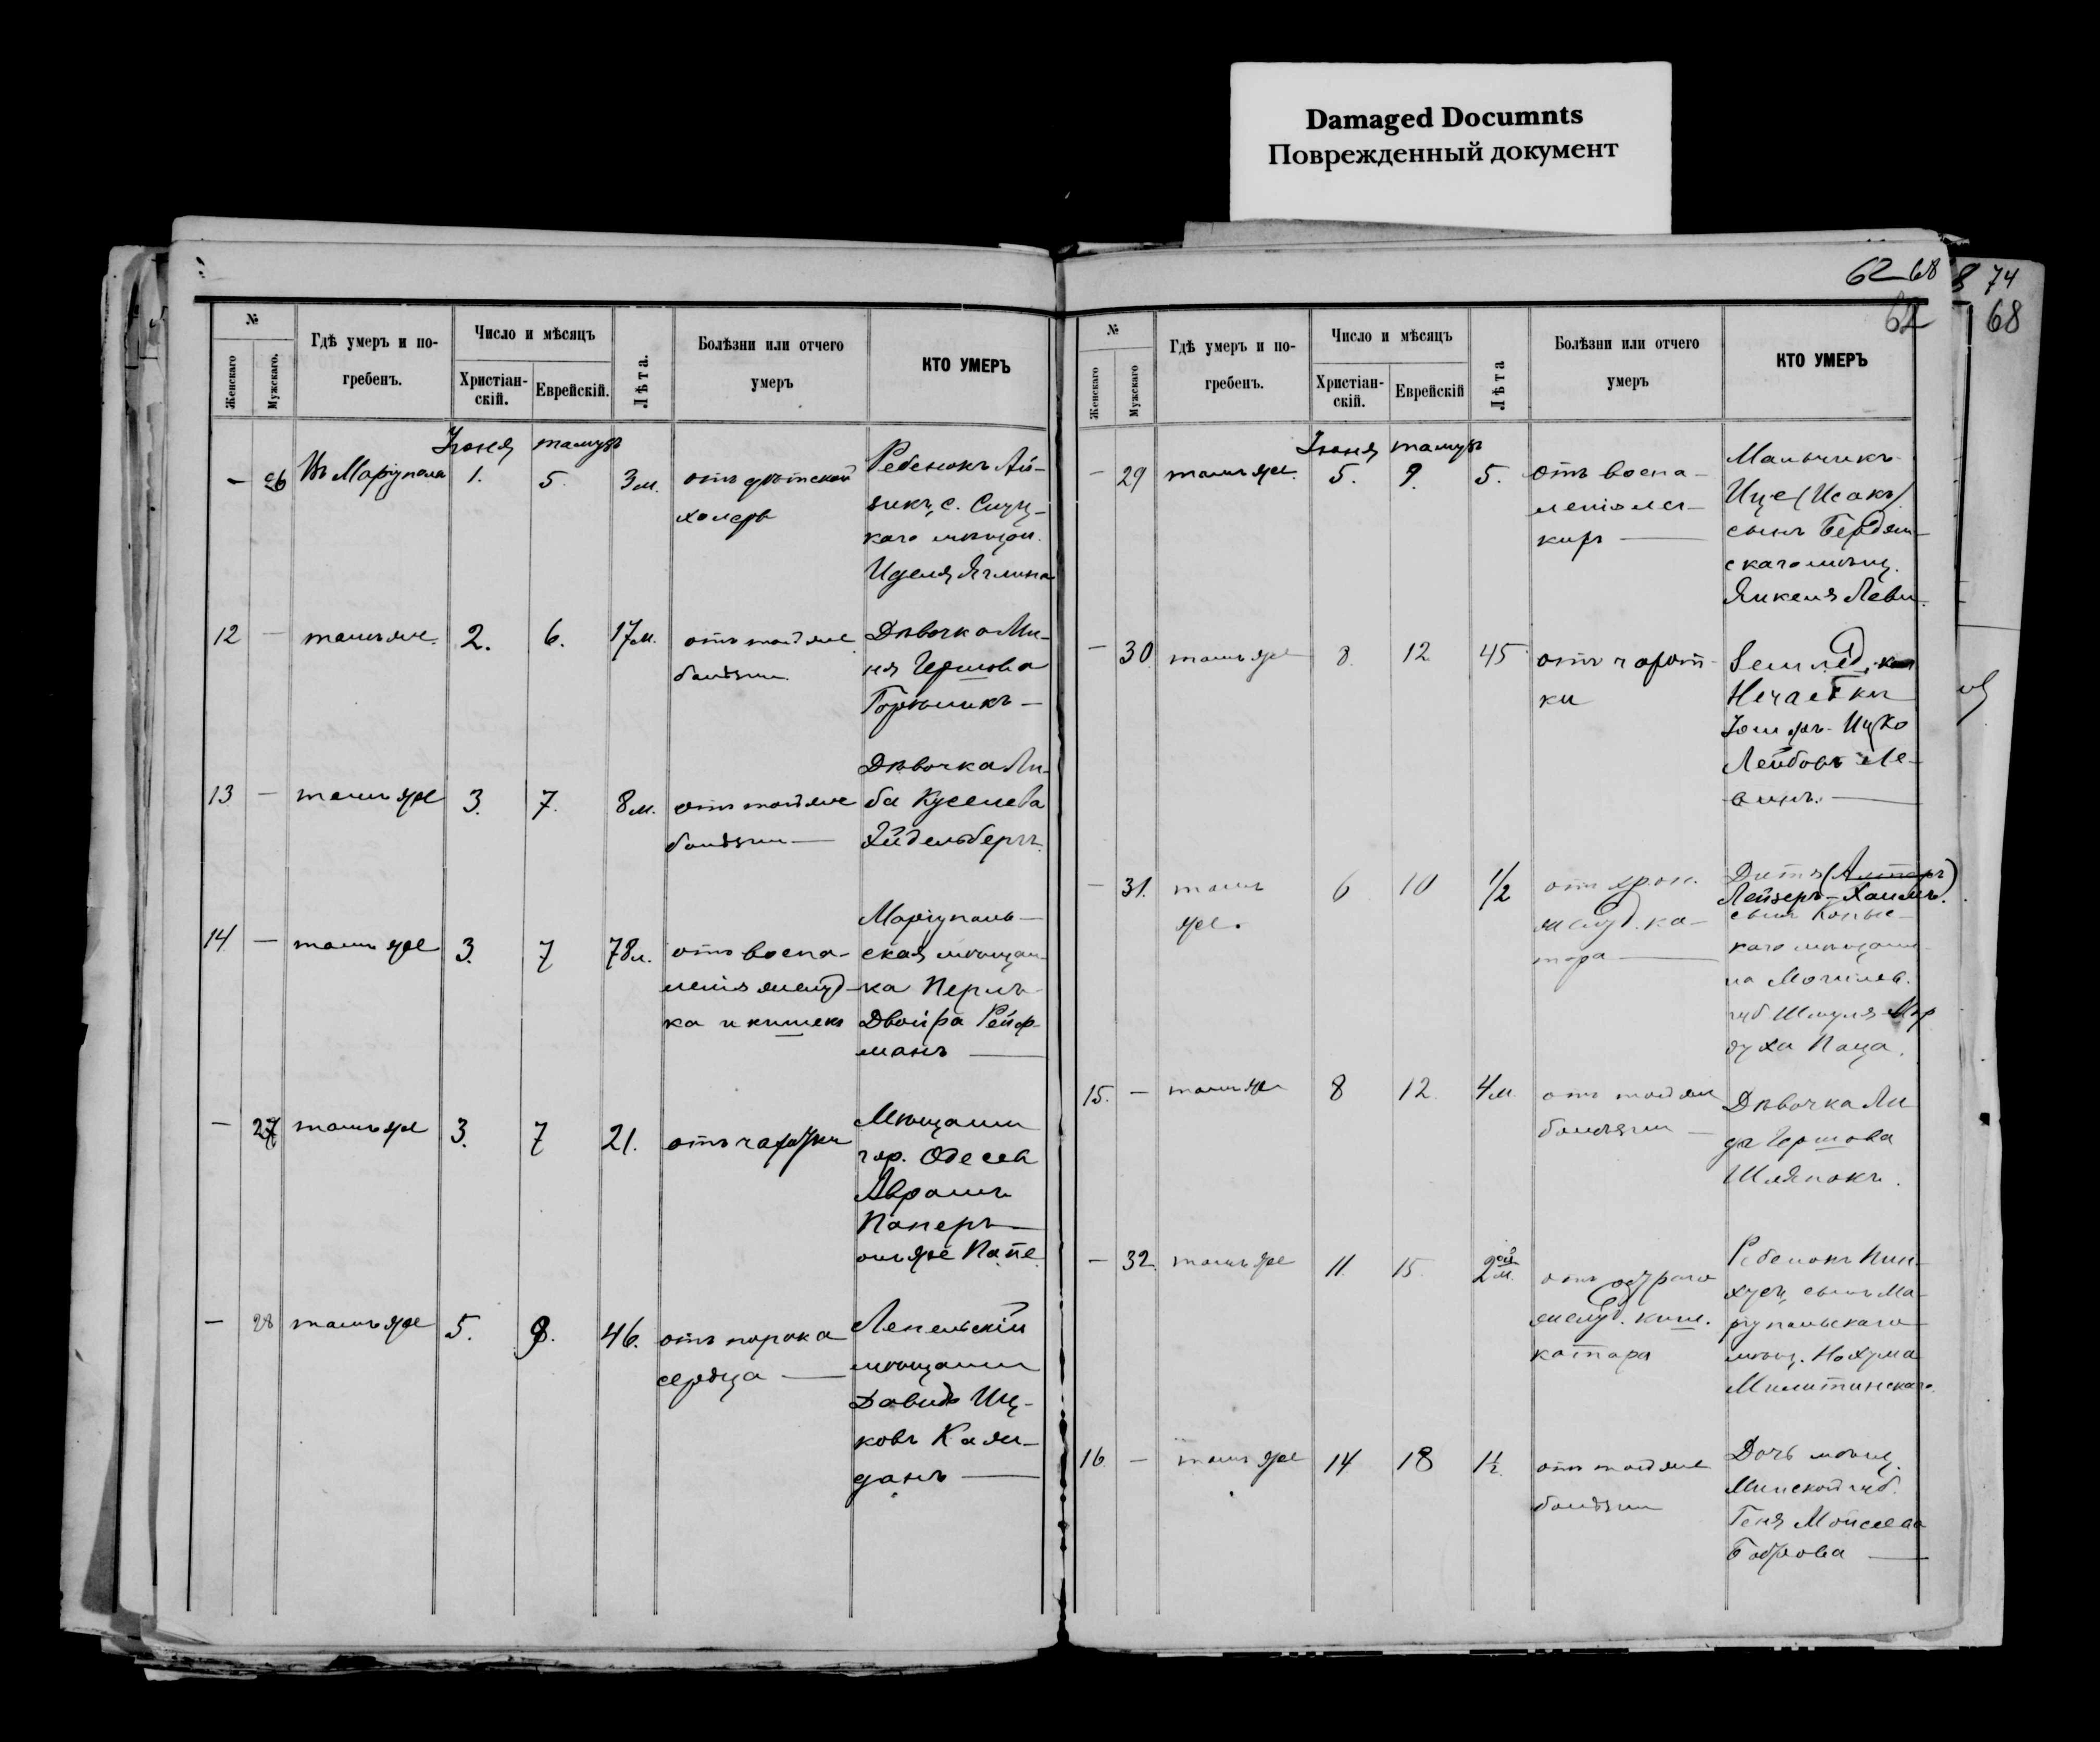 Damaged Documnts
Поврежденный документ
62 68
74
68
№
Женскаго
Мужскаго.
Гдѣ умеръ и по-
гребенъ.
Число и мѣсяцъ
Христіан-
скій.
Еврейскій.
Лѣта.
Болѣзни или отчего
умеръ
КТО УМЕРЪ
Іюня тамузъ
— 26 Въ Маріуполѣ 1. 5. 3 м. отъ дѣтской
холеры
Ребенокъ
с. Слуц-
каго мѣщан.
12 — тамъ же. 2. 6. 17 м. отъ той же
болѣзни
Дѣвочка Ми-
ня Гершова
13 — тамъ же 3. 7. 8 м. отъ той же
болѣзни —
Дѣвочка Ли-
ба Куселева
Эйдельбергъ.
14 — тамъ же 3. 7 78 л. отъ воспа-
ленія желуд-
ка и кишекъ
Маріуполь-
ская мѣщан-
ка Перль-
Двойра Рейф-
манъ —
— 27 тамъ же 3. 7 21. отъ чахотки
Мѣщанин
гор. Одесса
Аврамъ
Паперъ —
онъ же Папе
— 28 тамъ же 5. 9. 46. отъ порока
сердца —
Лепельскій
мѣщанин
Давидъ Иц-
ковъ Кай-
данъ —
№
Женскаго
Мужскаго
Гдѣ умеръ и по-
гребенъ.
Число и мѣсяцъ
Христіан-
скій.
Еврейскій
Лѣта
Болѣзни или отчего
умеръ
КТО УМЕРЪ
Іюня тамузъ
— 29 тамъ же. 5. 9. 5. отъ воспа-
ленія лег-
кихъ —
Мальчикъ
Ице (Исакъ)
сынъ Бердян-
скаго мѣщ.
Янкеля Леви-
— 30 тамъ же 8. 12. 45 отъ чахот-
ки
Землед. кол
Нечаевки
Ицко
Лейбовъ Ле-
винъ. —
— 31. тамъ
же.
6 10 1/2 отъ хрон.
желуд. ка-
тара —
Дитя (Алтеръ)
Лейзеръ-Хаимъ.
сынъ Копыс-
каго мѣщани-
на Могилев.
губ Шмуля-Мор
духа Паца.
15. — тамъ же 8 12. 4 м. отъ той же
болѣзни —
Дѣвочка Ли
да Гершова
Шляпакъ.
— 32. тамъ же 11. 15. 2 м. отъ остраго
желуд. киш.
катара
Ребенокъ Пин-
хусъ, сынъ Ма-
ріупольскаго
мѣщ. Нохума
Милитинскаго.
16 — тамъ же 14 18 1½ отъ той же
болѣзни
Дочь мѣщ.
Минской губ.
Геня Мойсеева
Боброва —